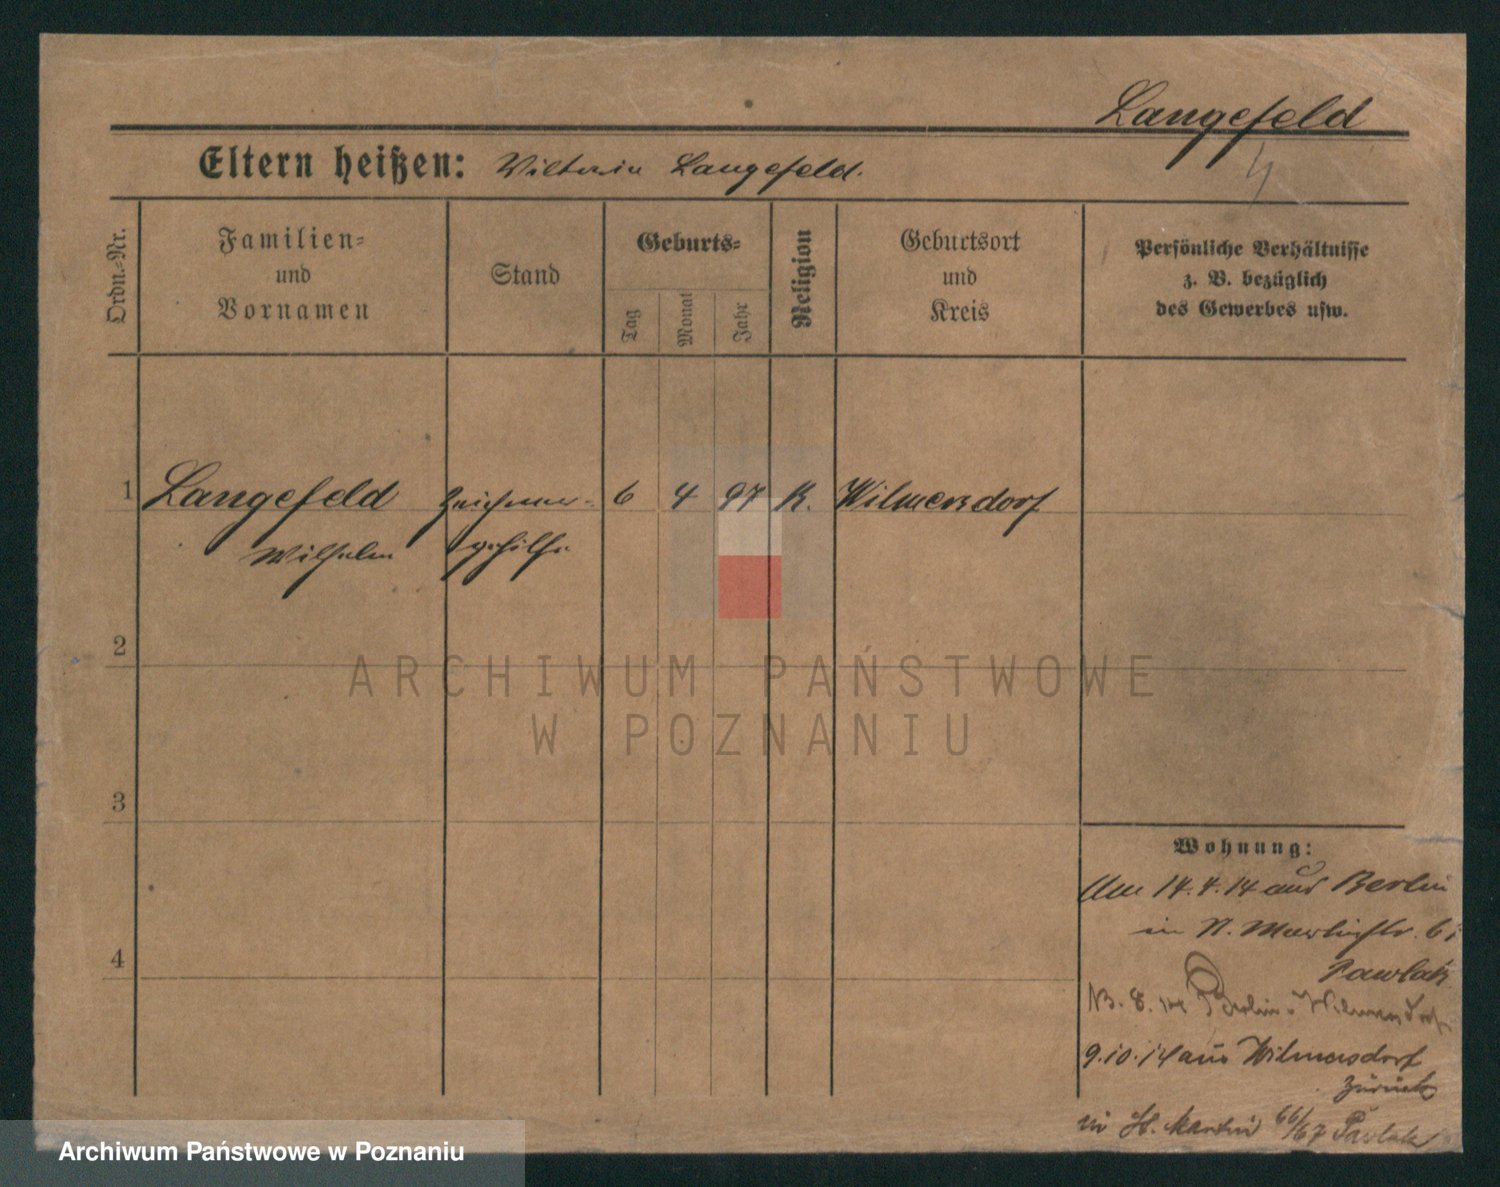 Langefeld
Eltern heißen: Viktoria Langefeld.
Ordn.-Nr.
Familien-
und
Vornamen
Stand
Geburts-
Tag
Monat
Jahr
Religion
Geburtsort
und
Kreis
Persönliche Verhältnisse
z. B. bezüglich
des Gewerbes usw.
1 Langefeld Zeichner- 6 4 97 K. Wilmersdorf
Wilhelm gehilfe
2
ARCHIWUM PAŃSTWOWE
W POZNANIU
3
Wohnung:
Am 14.4.14 aus Berlin
in St. Martinstr.
Pawlak
8. 14 Berlin-Wilmersdorf
4
9.10.14 aus Wilmersdorf
zurück
in St. Martin 66/67 Pawlak
Archiwum Państwowe w Poznaniu